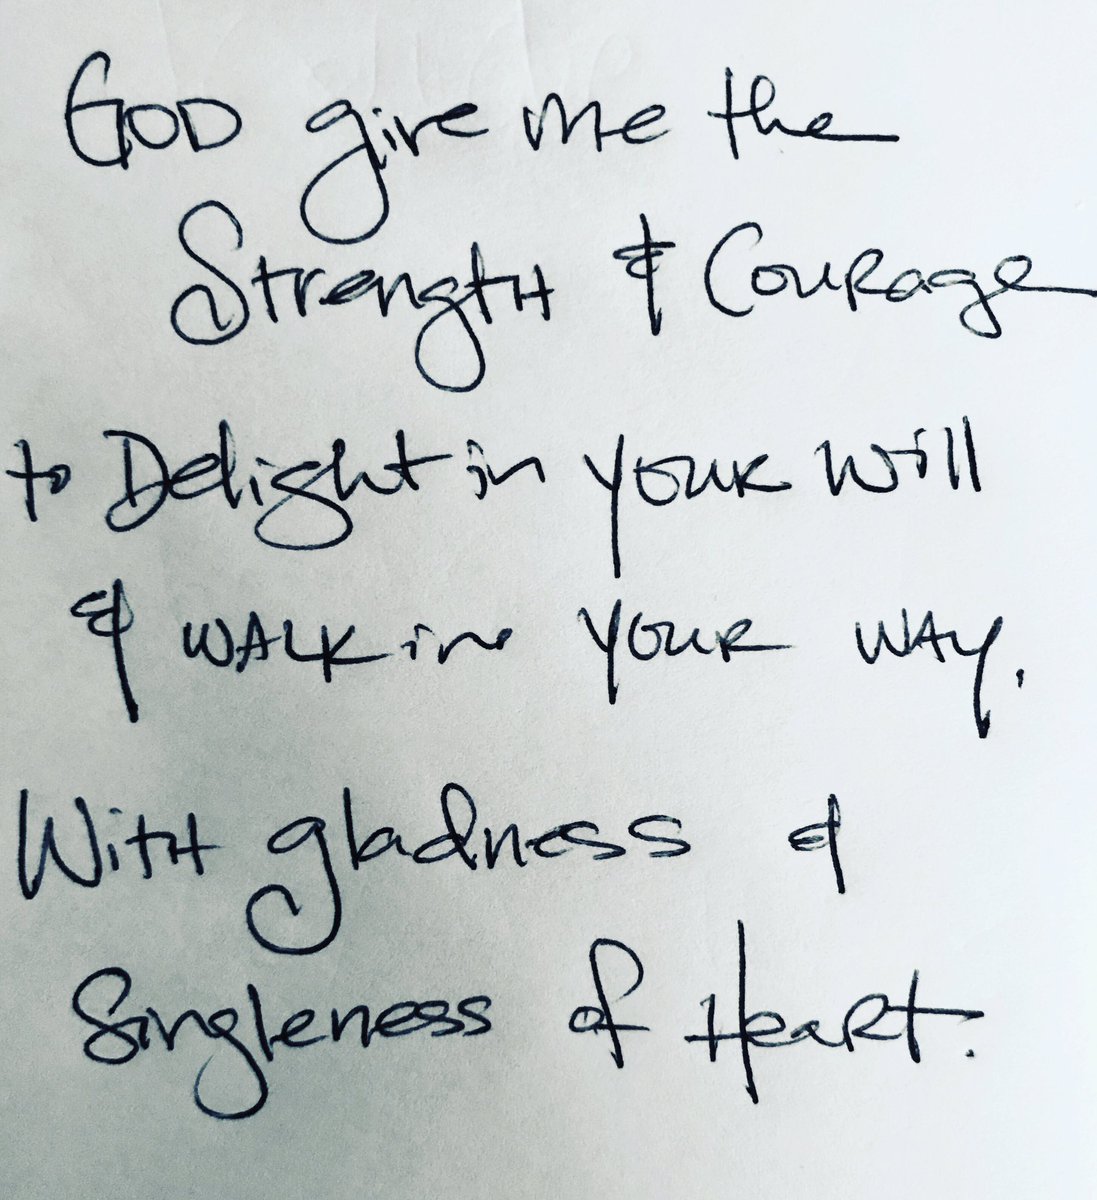 GOD give me the
Strength & Courage
to Delight in your will
& walk in your way.
With gladness &
Singleness of Heart.